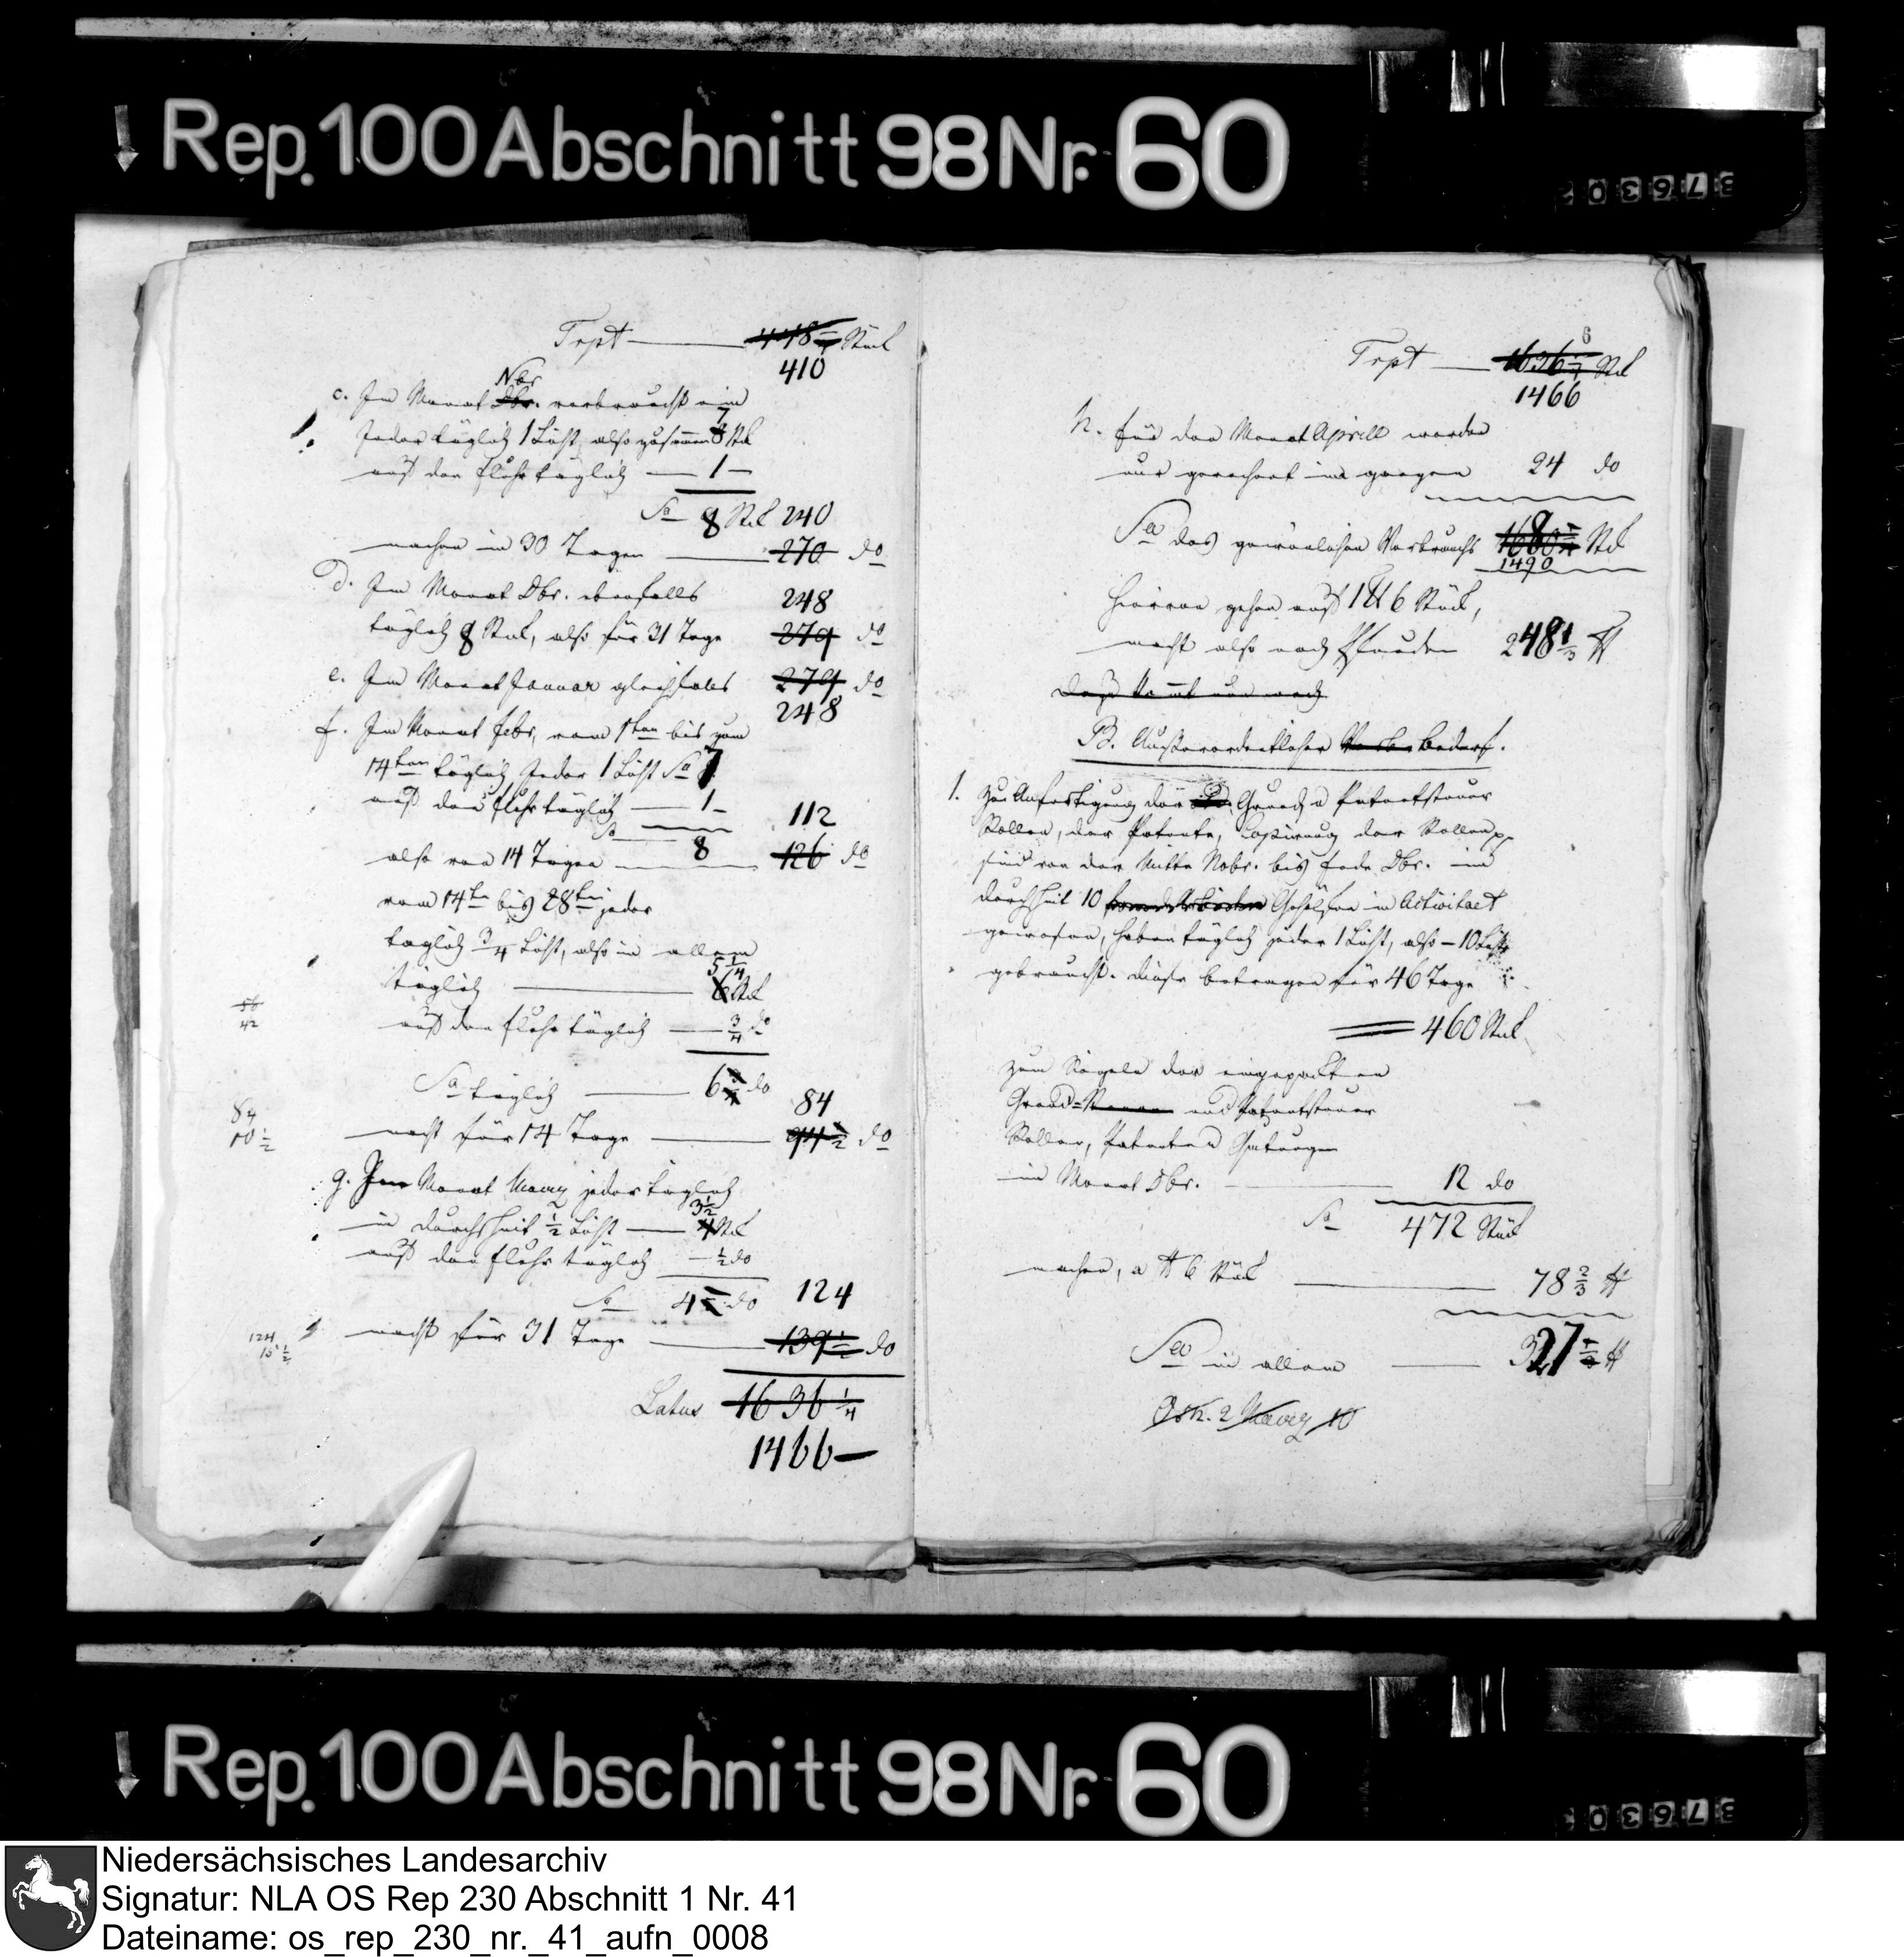 Rep. 100 Abschnitt 98 Nr. 60
Trpt 448 Stück
410
Nbr.
c. Im Monat Dbr. verbraucht ein
Jeder täglich 1 Licht, also zusammen 7 Stck
auf der Fluhr täglich 1
Sa 8 Stck 240
machen in 30 Tagen 270 do
d. Im Monat Dbr. ebenfalls 248
täglich 8 Stück, also für 31 Tage 279 do
e. Im Monat Januar gleichfals 279 do
248
f. Im Monat Febr, vom 1ten bis zum
14ten täglich Jeder 1 Licht Sa 7
auf der Fluhr täglich 1
112
Sa 8
also von 14 Tagen 126 do
vom 14ten bis 28ten jeder
täglich 3/4 Licht, also in allem
5 1/4
täglich 6 Stck
56
42
auf der Fluhr täglich 3/4 do
Sa täglich 6 do
84
84
10 1/2
macht für 14 Tage 94 1/2 do
g. Im Monat Maerz jeder täglich
3 1/2
in durchschnit 1/2 Licht 4 Stck
auf der Fluhr täglich 1/2 do
Sa 4 do 124
124
15 1/2
macht für 31 Tage 139 1/2 do
Latus 1636 1/4
1466
6
Trpt 1636 1/4 Stck
1466
h. für den Monat Aprill werden
nur gerechnet im ganzen 24 do
Sa des gewönlichen Verbrauchs 1660 Stck
1490
Hiervon gehen auf 1 ℔ 6 Stück,
macht also nach Pfunden 248 1/3 ℔
B. Außerordentlicher bedarf.
1. Zur Anfertigung der Grund u Patentsteuer
Rollen, der Patente, Copirung der Rollen pp
sind von der Mitte Nobr. bis Ende Dbr. im
durchschnit 10 Gehülfen in Activitaet
gewesen, haben täglich jeder 1 Licht, also 10 Licht
gebraucht. diese betragen für 46 Tage
460 Stück
Zum Siegeln der eingepackten
Grund- und Patentsteuer
Rollen, Patente u
im Monat Dbr. 12 do
Sa 472 Stück
machen, a ℔ 6 Stück 78 2/3 ℔
Sa in allem 327 ℔
Osn. 2 Maerz 10
Rep. 100 Abschnitt 98 Nr. 60
Niedersächsisches Landesarchiv
Signatur: NLA OS Rep 230 Abschnitt 1 Nr. 41
Dateiname: os_rep_230_nr._41_aufn_0008